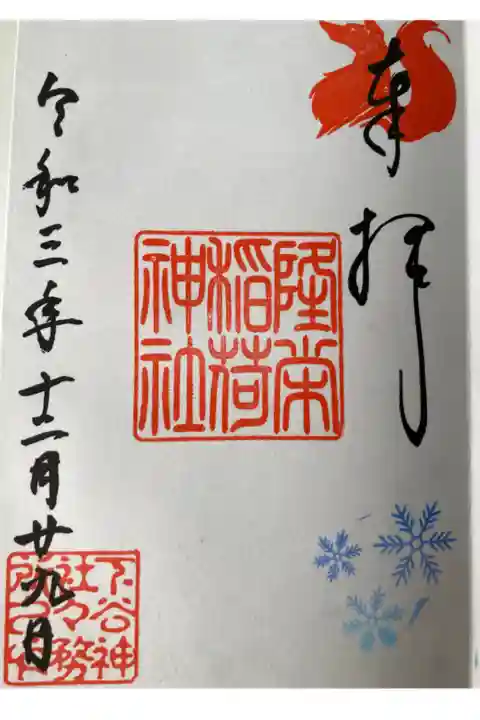 奉拝
隆栄
稲荷
神社
令和三年十二月廿九日
下谷神
社々務
所之印